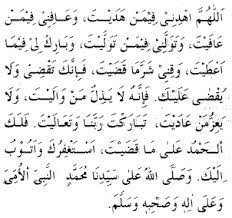 اَللّٰهُمَّ اهْدِنِىْ فِيْمَنْ هَدَيْتَ، وَعَافِنِى فِيْمَنْ
عَافَيْتَ، وَتَوَلَّنِىْ فِيْمَنْ تَوَلَّيْتَ، وَبَارِكْ لِىْ فِيْمَا
اَعْطَيْتَ، وَقِنِىْ شَرَّمَا قَضَيْتَ، فَاِنَّكَ تَقْضِىْ وَلَا
يُقْضٰى عَلَيْكَ. فَاِنَّهُ لَا يَذِلُّ مَنْ وَالَيْتَ، وَلَا
يَعِزُّ مَنْ عَادَيْتَ، تَبَارَكْتَ رَبَّنَا وَتَعَالَيْتَ، فَلَكَ
الْحَمْدُ عَلٰى مَا قَضَيْتَ، اَسْتَغْفِرُكَ وَاَتُوْبُ
اِلَيْكَ. وَصَلَّى اللهُ عَلٰى سَيِّدِنَا مُحَمَّدٍ النَّبِيِّ الْاُمِّيِّ
وَعَلٰى اٰلِهِ وَصَحْبِهِ وَسَلَّمَ.